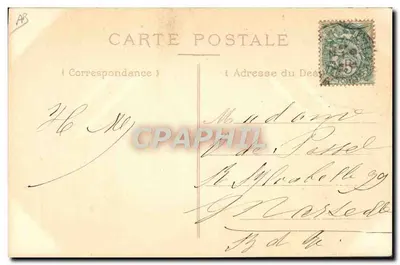 AB
CARTE POSTALE
( Correspondance )
( Adresse du Des
Madame
de Possel
R Sylvabelle 29
Marseille
B d R
CPAPHIL